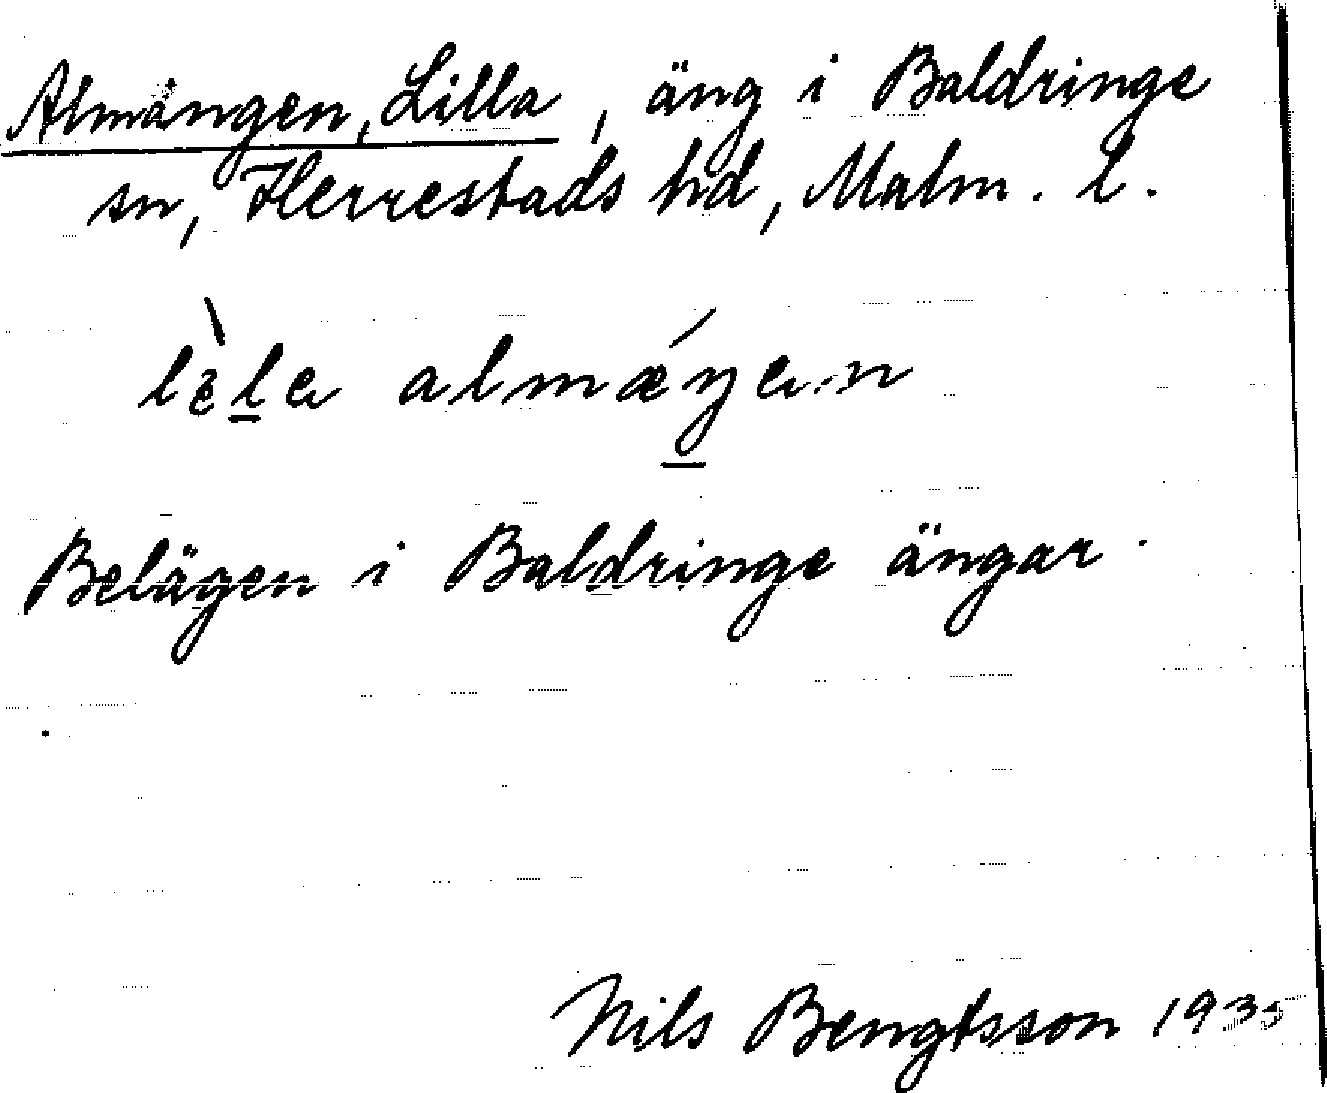 Almängen, Lilla, äng i Baldringe
sn, Herrestads hd, Malm. l.
lèla almǽŋan
Belägen i Baldringe ängar.
Nils Bengtsson 1935